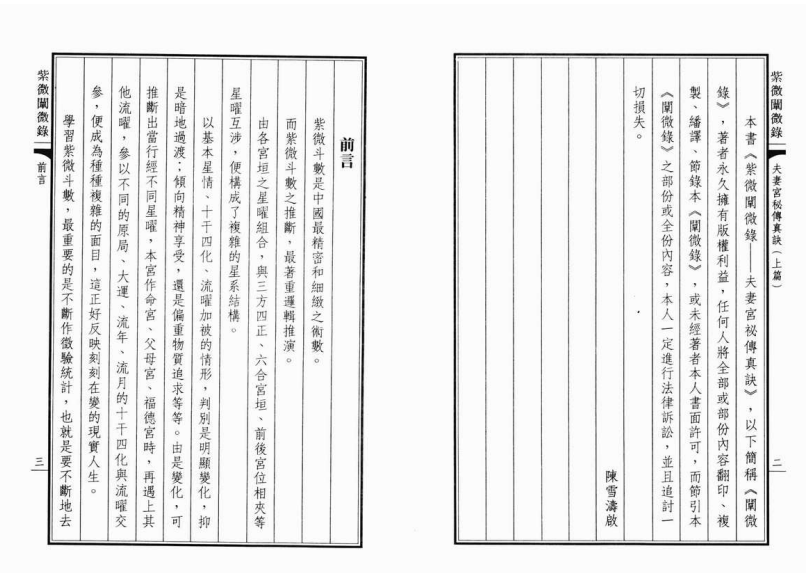 紫微闡微錄
夫妻宮秘傳真訣（上篇）
二
本書《紫微闡微錄——夫妻宮祕傳真訣》，以下簡稱《闡微
錄》，著者永久擁有版權利益，任何人將全部或部份內容翻印、複
製、繙譯、節錄本《闡微錄》，或未經著者本人書面許可，而節引本
《闡微錄》之部份或全份內容，本人一定進行法律訴訟，並且追討一
切損失。
陳雪濤啟
前言
紫微斗數是中國最精密和細緻之術數。
而紫微斗數之推斷，最著重邏輯推演。
由各宮垣之星曜組合，與三方四正、六合宮垣、前後宮位相夾等
星曜互涉，便構成了複雜的星系結構。
以基本星情、十干四化、流曜加被的情形，判別是明顯變化，抑
是暗地過渡；傾向精神享受，還是偏重物質追求等等。由是變化，可
推斷出當行經不同星曜，本宮作命宮、父母宮、福德宮時，再遇上其
他流曜，參以不同的原局、大運、流年、流月的十干四化與流曜交
參，便成為種種複雜的面目，這正好反映刻刻在變的現實人生。
學習紫微斗數，最重要的是不斷作徵驗統計，也就是要不斷地去
紫微闡微錄
前言
三